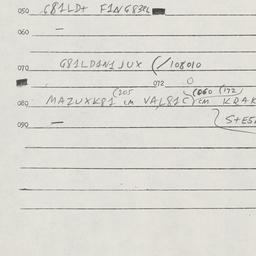 050 G81LD+ F1NG83RL
060 —
070 G81LD1N1 JUX (/108010
072 0
(205 (060 (172)
080 MAZUXK81 cm VAL81C) cm KRAK
090 —
S+E5